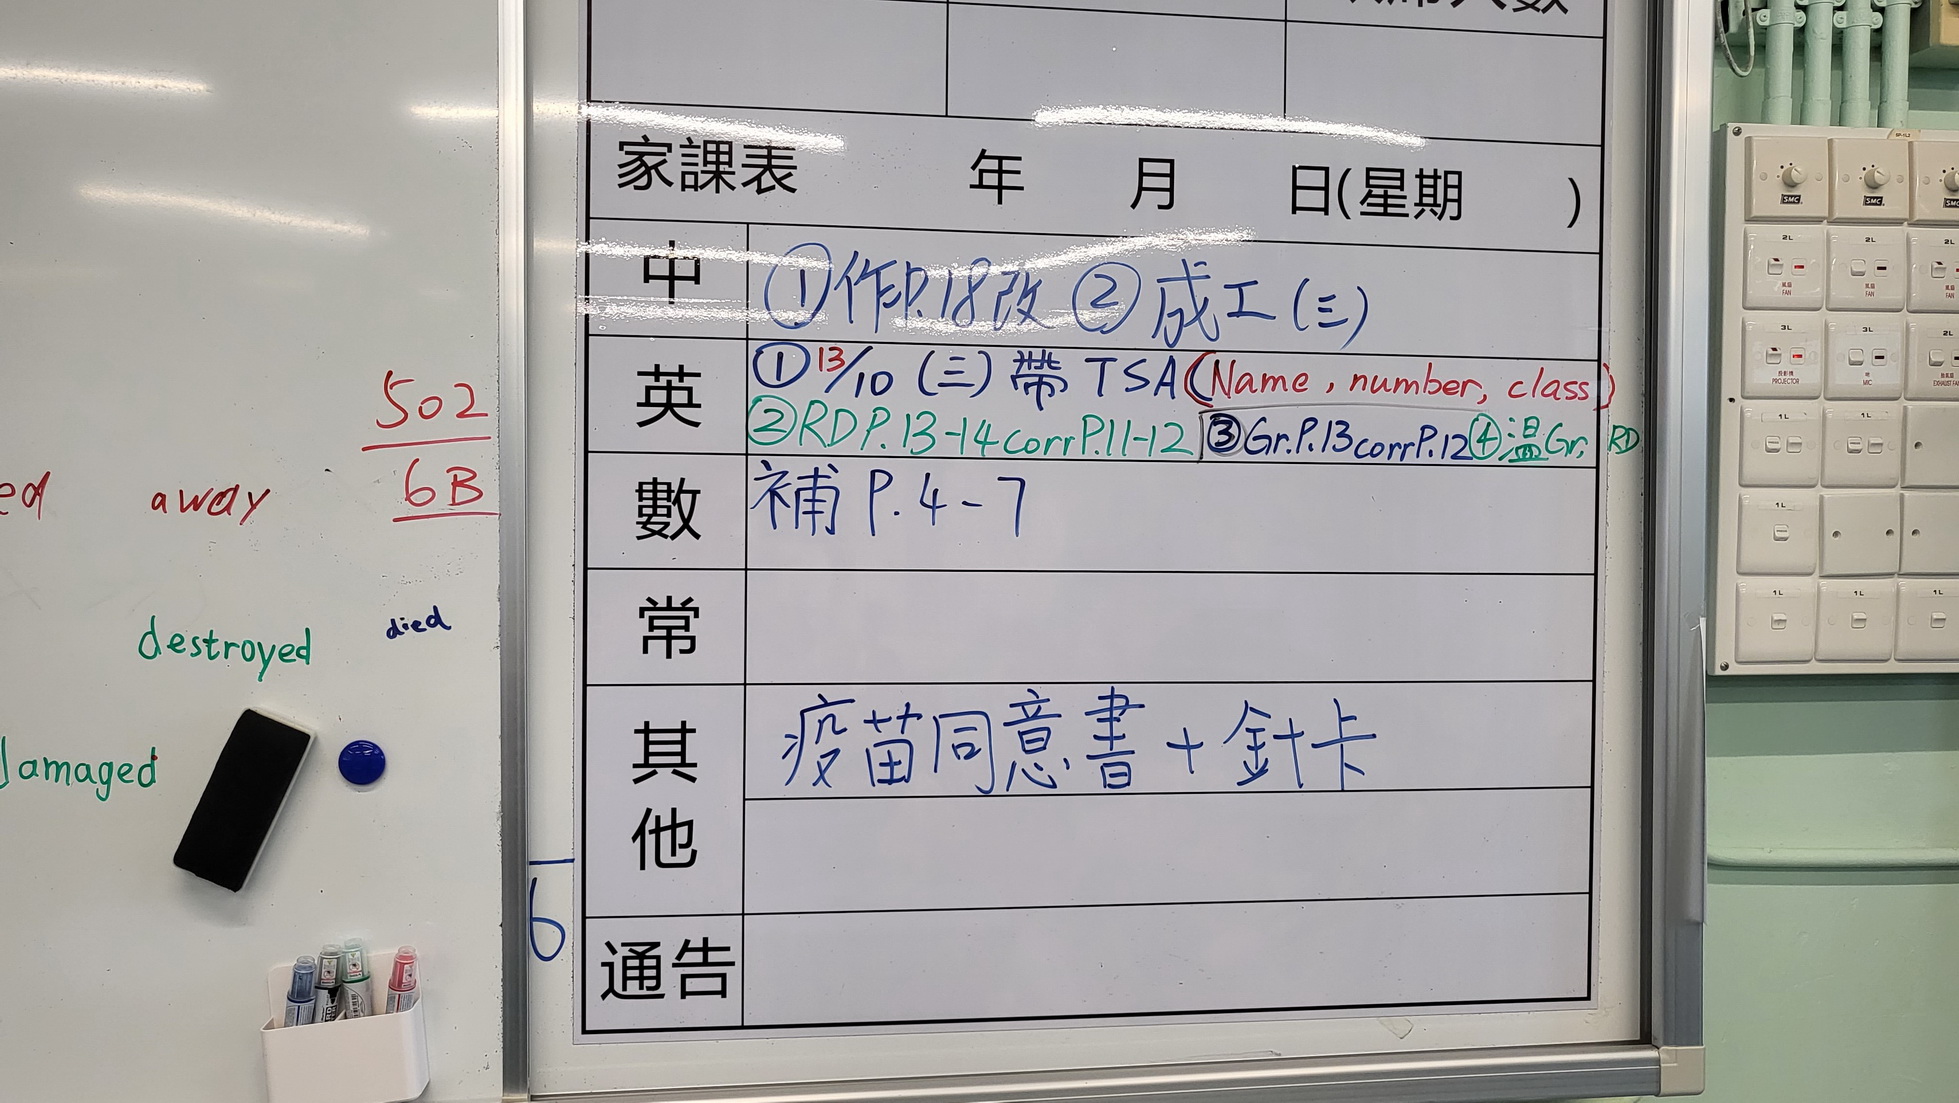 家課表 年 月 日(星期 )
中 ①作P.18改 ②成工(三)
英 ①13/10 (三) 帶 TSA (Name, number, class)
②RD P.13-14 corr P.11-12 ③Gr. P.13 corr P.12 ④温Gr, RD
數 補 P.4-7
常
其他 疫苗同意書+針卡
通告
502
6B
away
destroyed
died
damaged
6
SMC SMC SMC
2L 2L 2L
風扇 風扇
FAN FAN FAN
3L 3L 2L
投影機
PROJECTOR MIC EXHAUST FAN
1L 1L
1L
1L 1L 1L